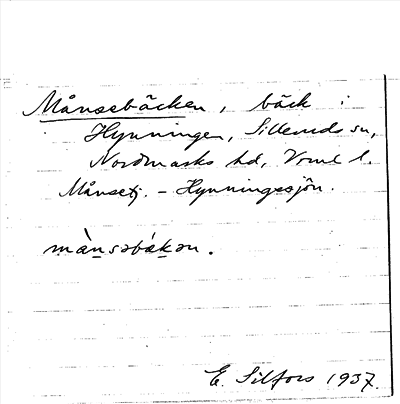 Månsebäcken, bäck i
Hynningen, Silleruds sn,
Nordmarks hd, Vrml l.
Månsetj. – Hynningessjön.
mànsəbákən.
E. Silfors 1937.